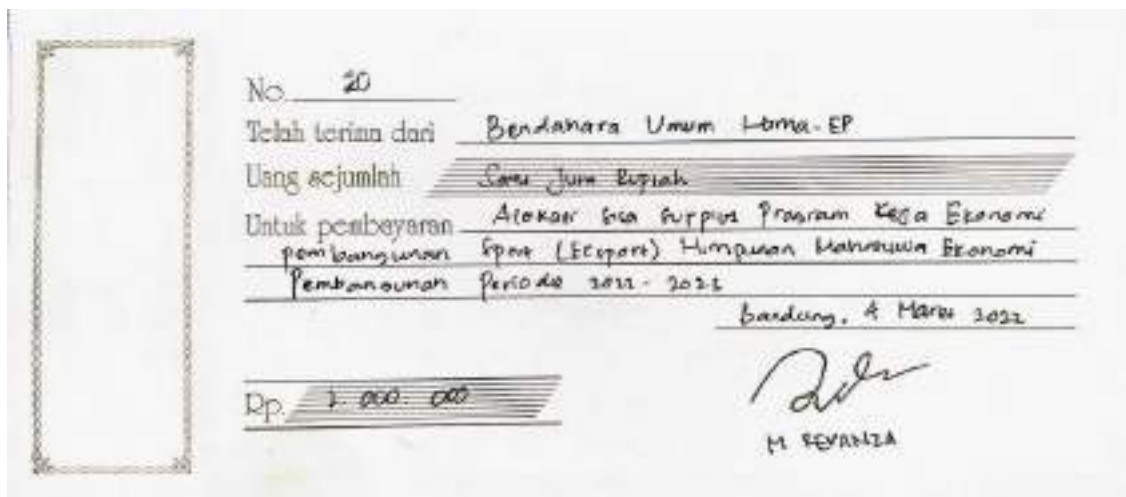 No. 20
Telah terima dari Bendahara Umum Hima-EP
Uang sejumlah Satu Juta Rupiah
Untuk pembayaran Alokasi Sisa Surplus Program Kerja Ekonomi
pembangunan Sport (Ecsport) Himpunan Mahasiswa Ekonomi
Pembangunan Periode 2021 - 2022
Bandung, 4 Maret 2022
Rp. 1.000.000
M REVANZA